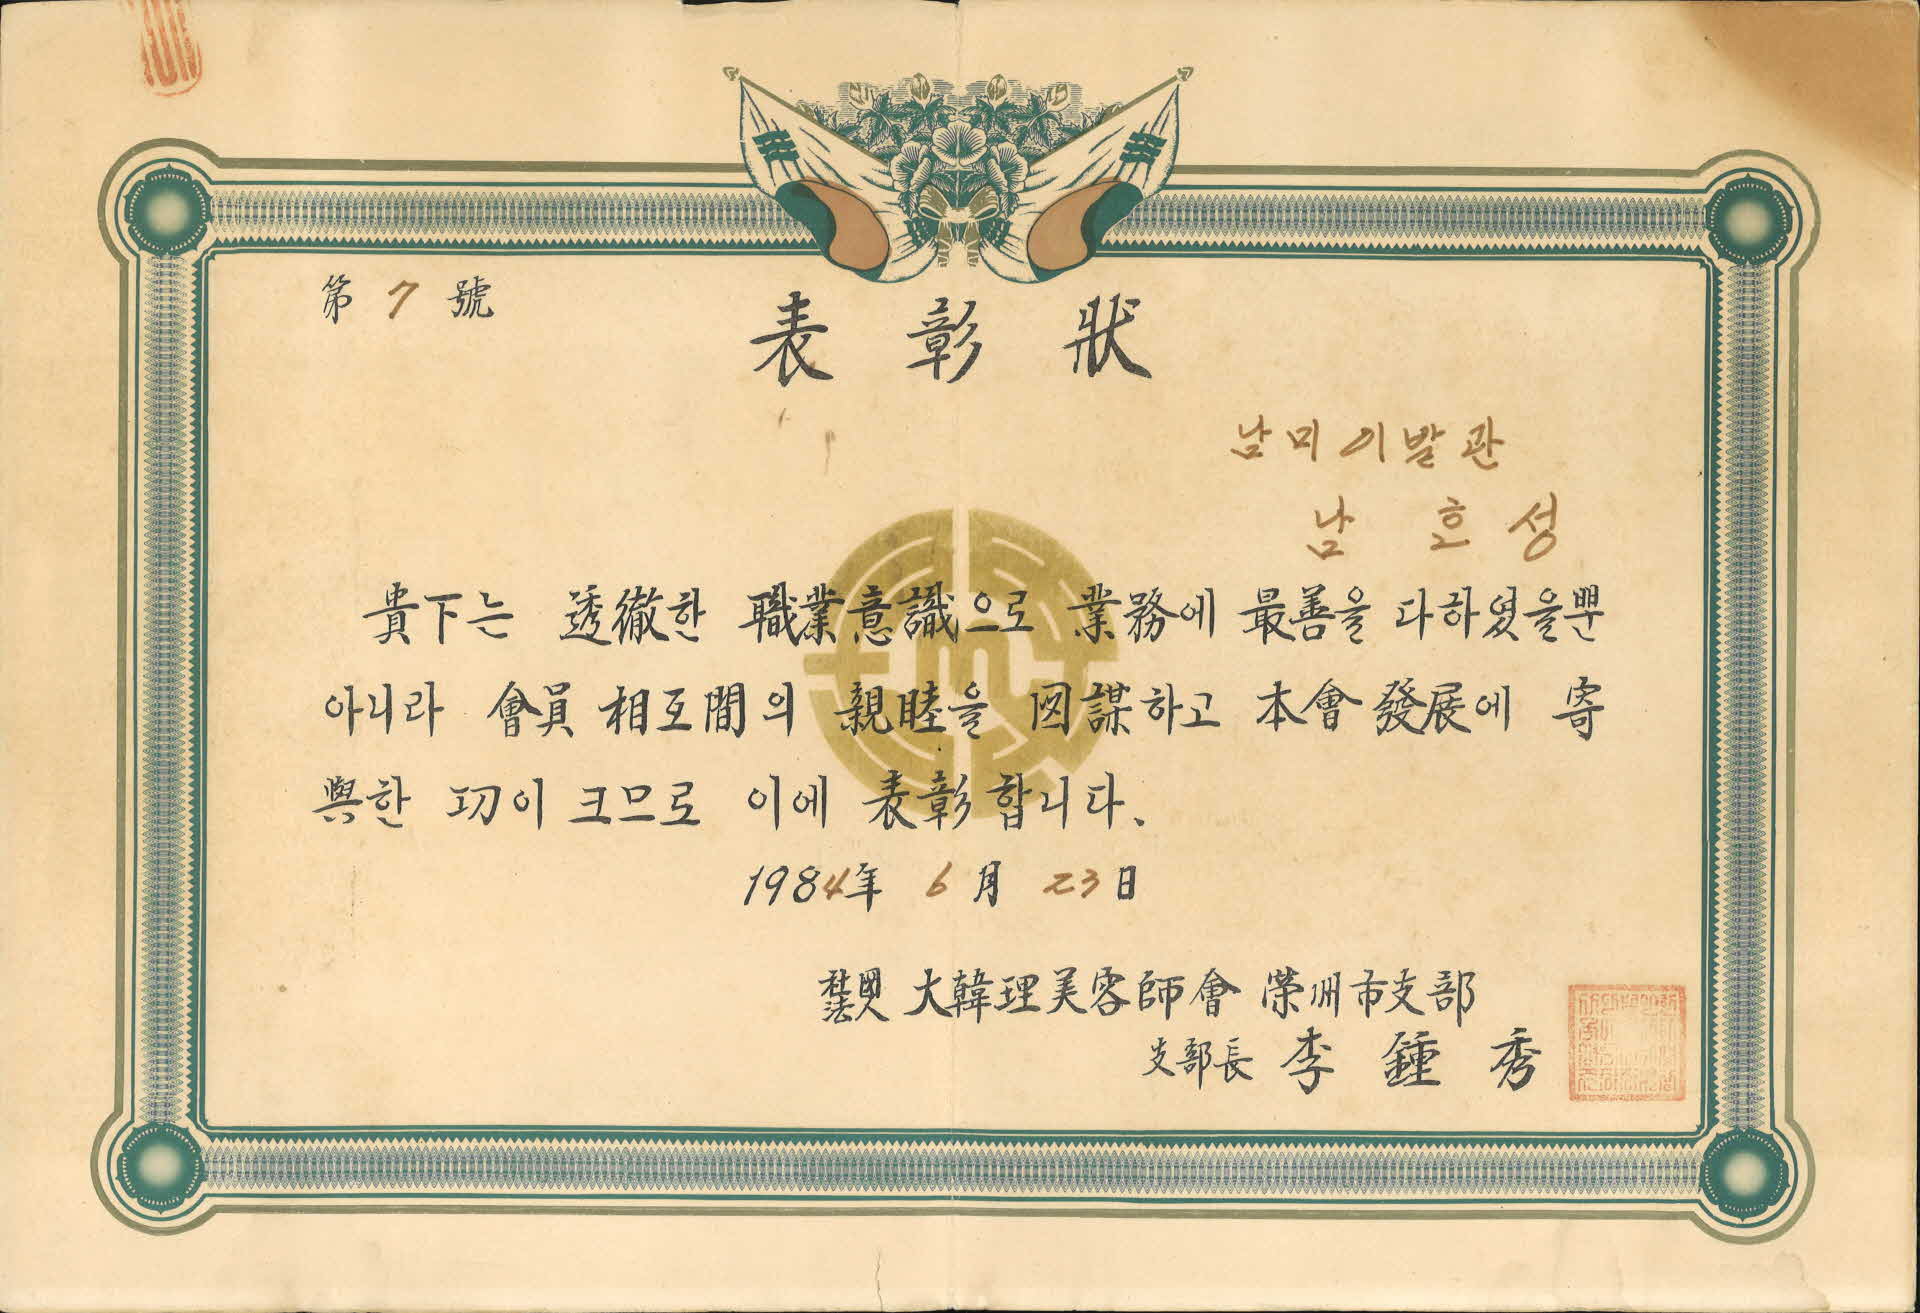 第 7 號
表彰狀
남미이발관
남 호 성
貴下는 透徹한 職業意識으로 業務에 最善을 다하였을뿐
아니라 會員 相互間의 親睦을 図謀하고 本會 發展에 寄
與한 功이 크므로 이에 表彰합니다.
1984年 6月 23日
社團法人 大韓理美容師會 榮州市支部
支部長 李鍾秀